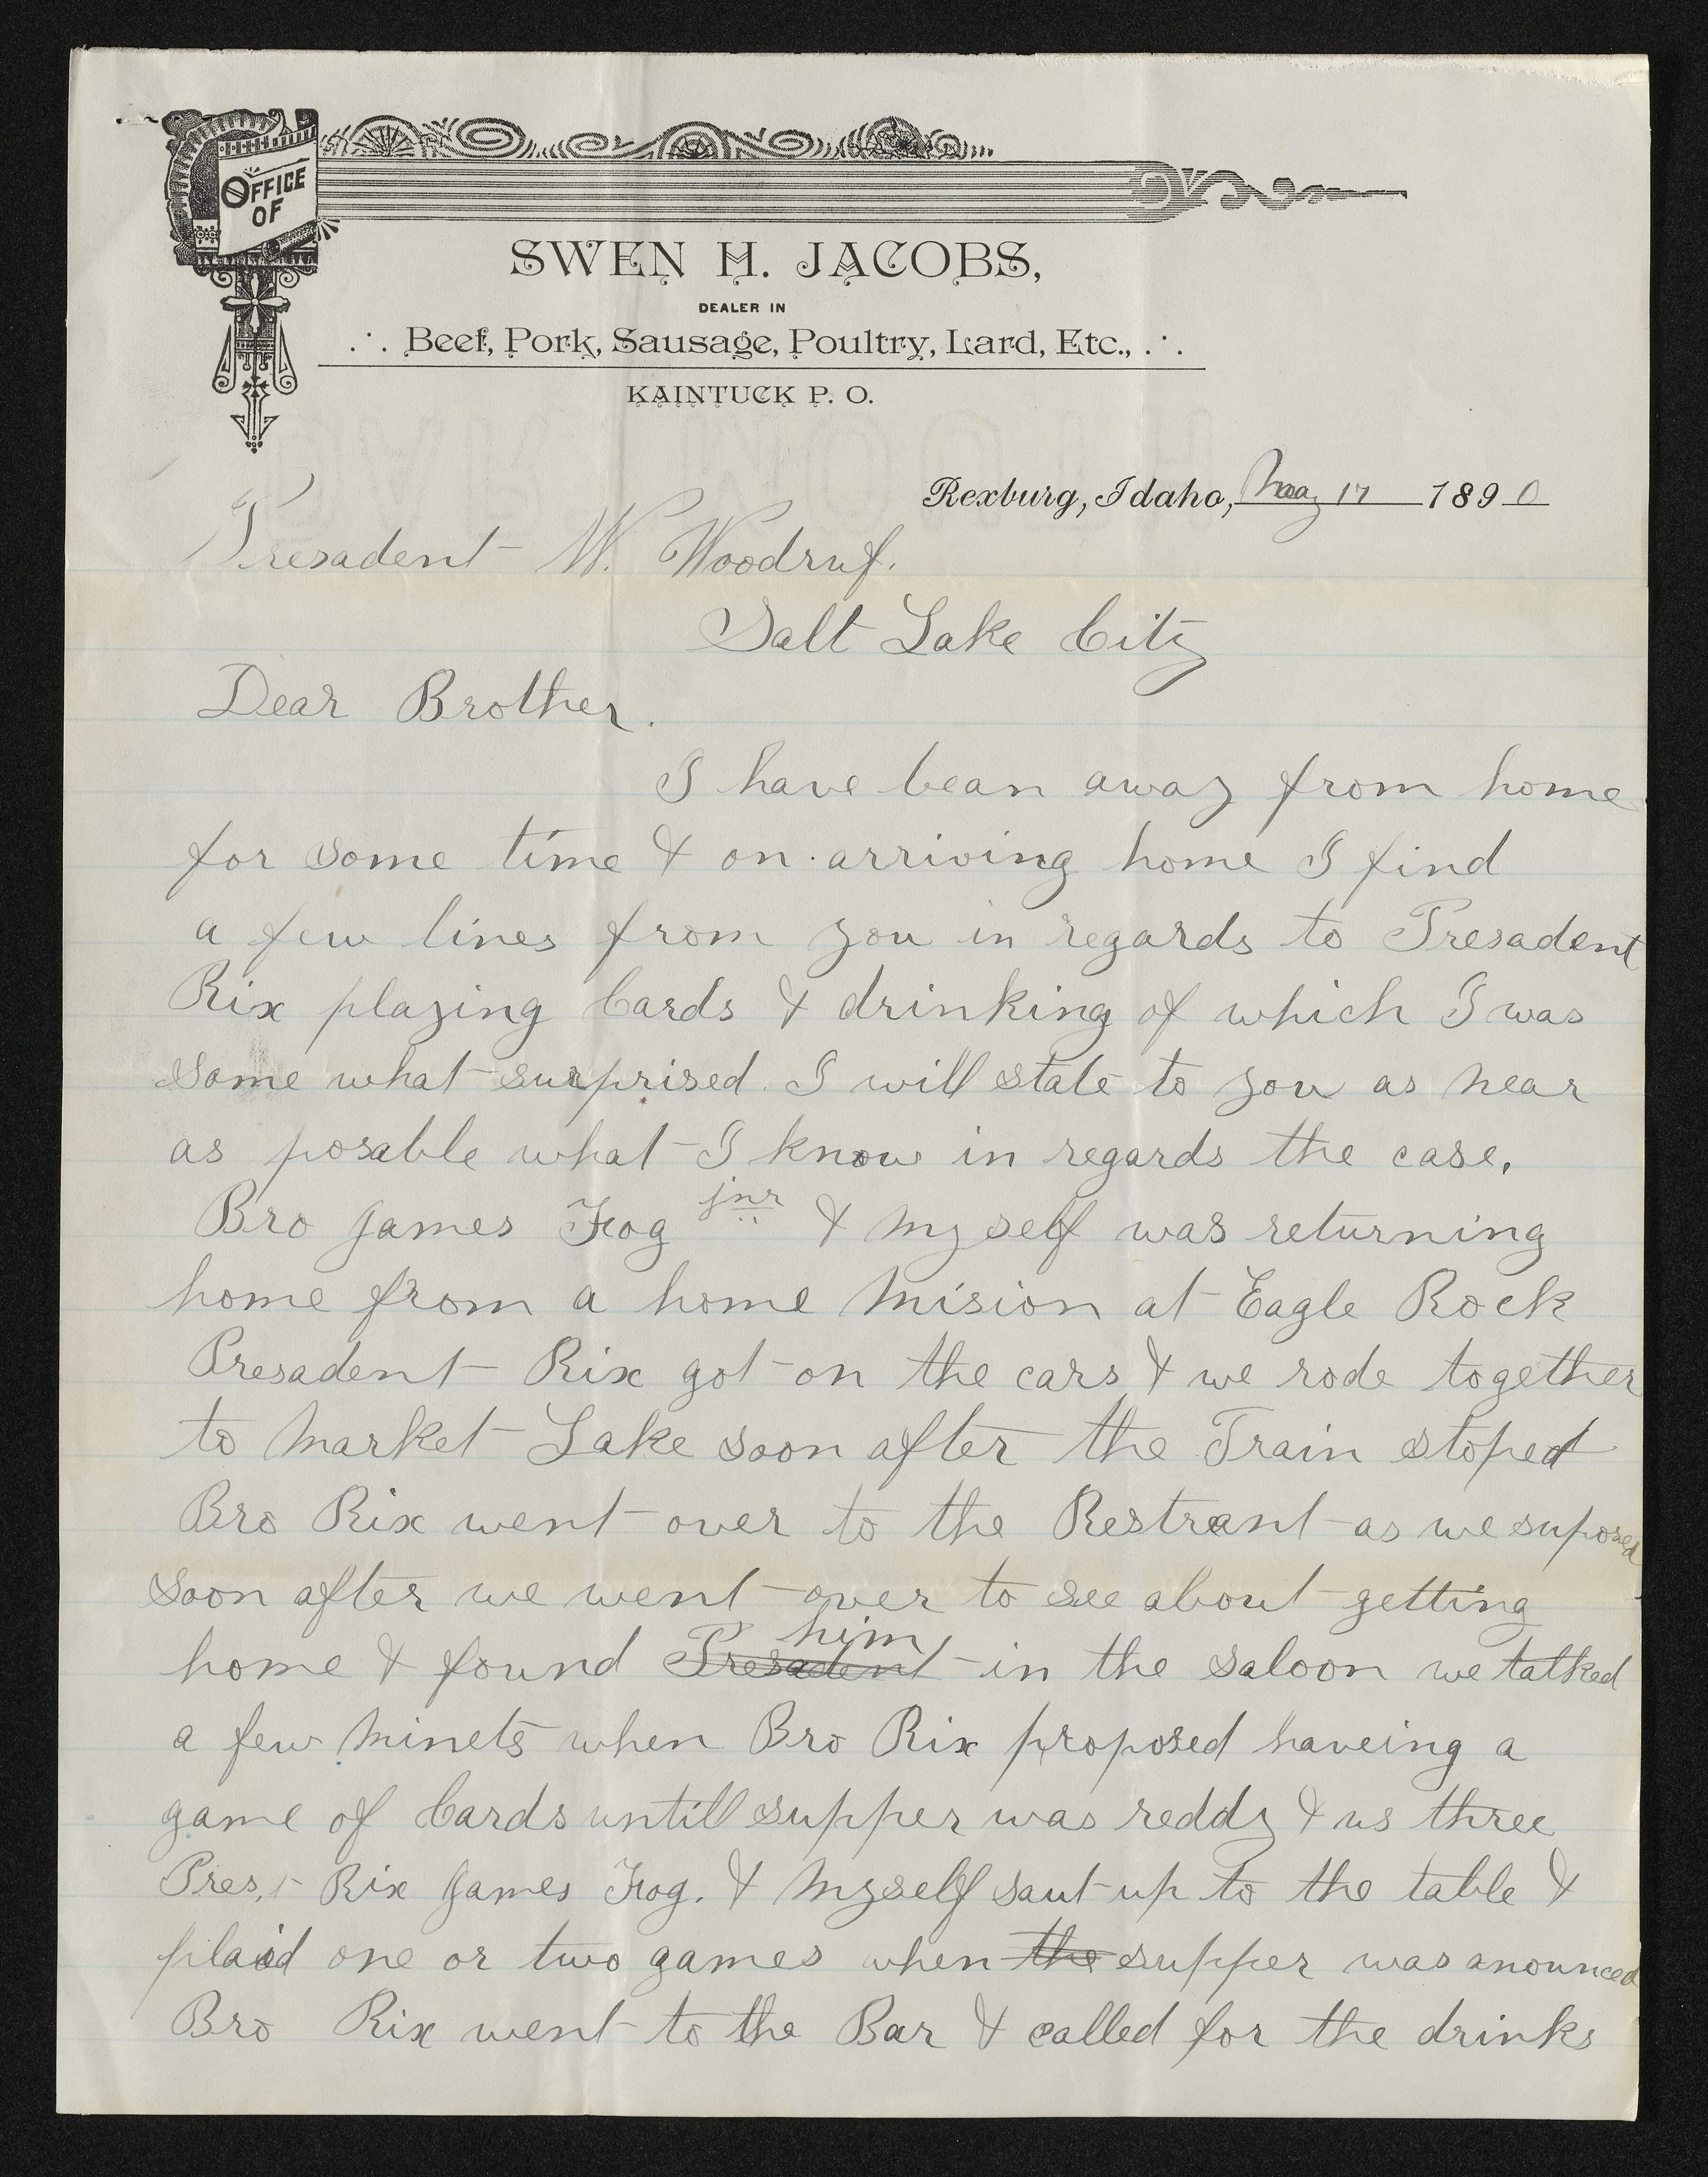 OFFICE
OF
SWEN H. JACOBS,
DEALER IN
Beef, Pork, Sausage, Poultry, Lard, Etc.,
KAINTUCK P. O.
Rexburg, Idaho, May 17 1890
Presadent W. Woodruf.
Salt Lake City
Dear Brother.
I have bean away from home
for some time & on arriving home I find
a few lines from you in regards to Presadent
Rix playing Cards & drinking of which I was
some what surprised. I will state to you as near
as posable what I know in regards the case.
Bro James Fog jnr & my self was returning
home from a home mision at Eagle Rock
Presadent Rix got on the cars & we rode together
to Market Lake soon after the Train stoped
Bro Rix went over to the Restrant as we suposed
soon after we went over to see about getting
him
home & found Presadent in the saloon we talked
a few minets when Bro Rix proposed haveing a
game of Cards untill supper was reddy & us three
Pres.t Rix James Fog. & Myself saut up to the table &
plaid one or two games when the supper was anounced
Bro Rix went to the Bar & called for the drinks